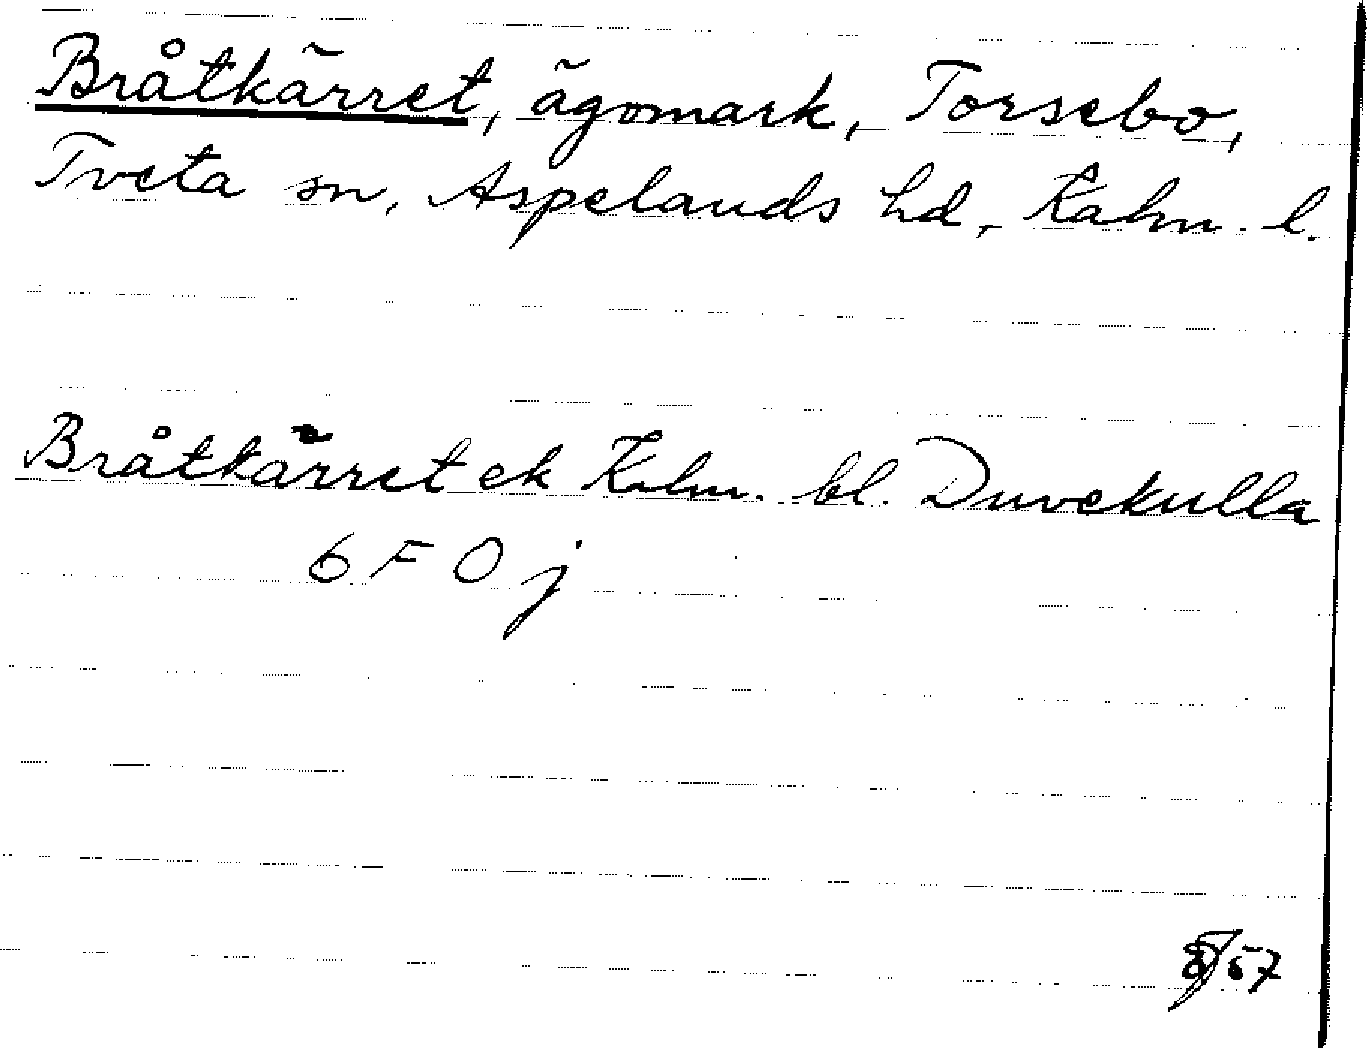 Bråtkärret, ägomark, Torsebo,
Tveta sn, Aspelands hd, Kalm. l.
Bråtkärret ek Kalm. bl. Duvekulla
6 F 0 j